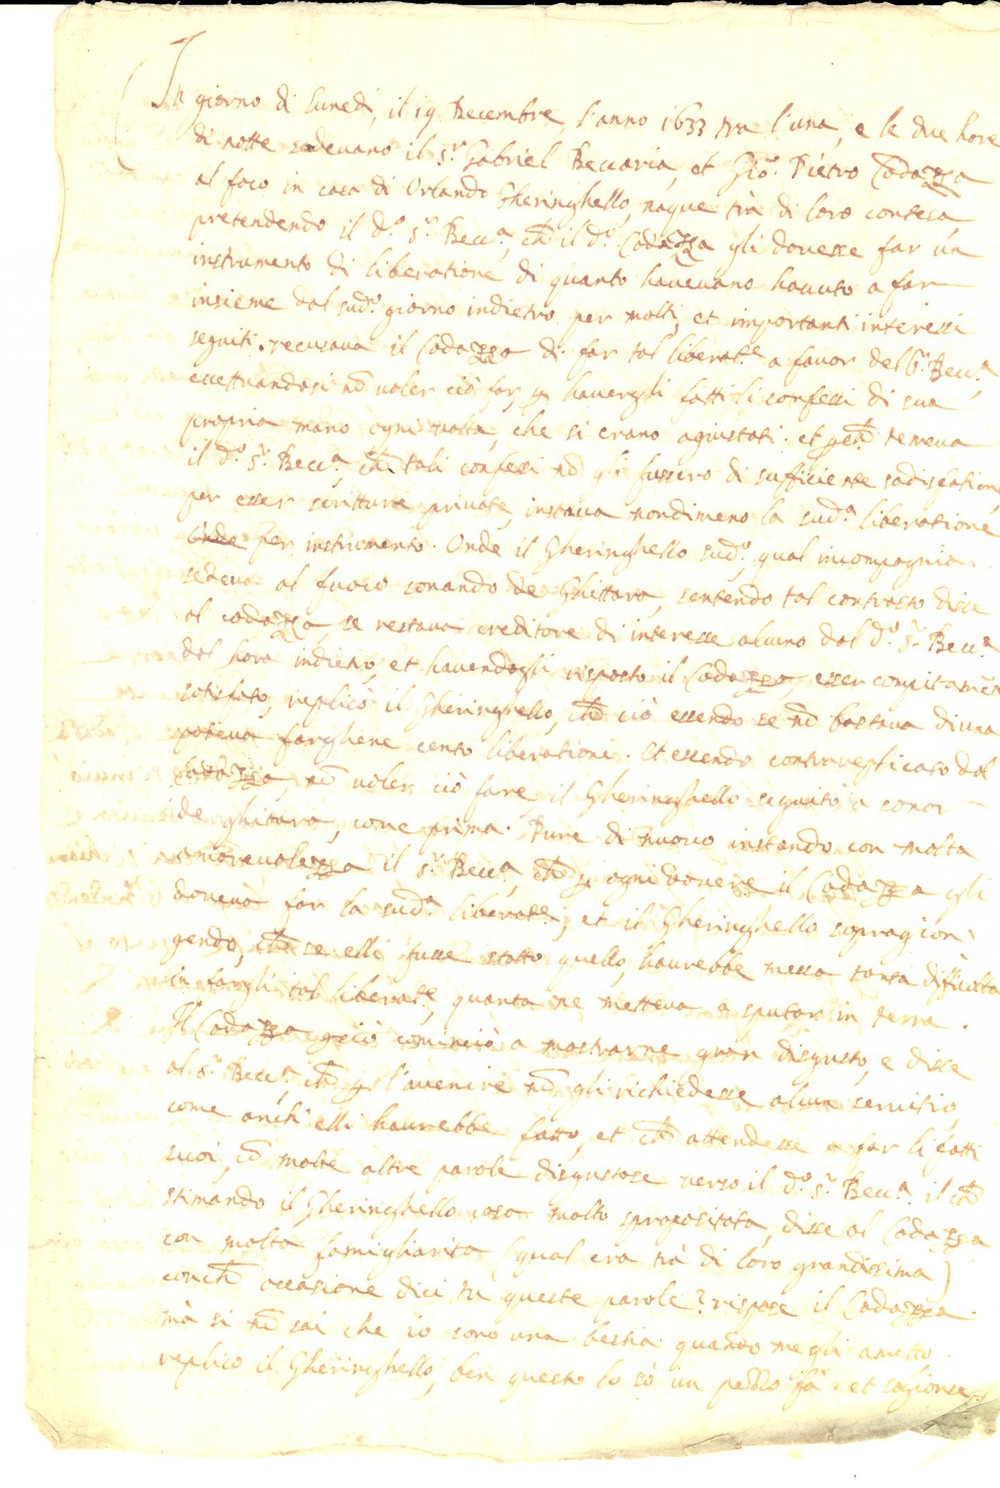 In giorno di lunedì, il 19 Decembre, l'anno 1633 tra l'una, e le due hore
di notte sedevano il S.r Gabriel Beccaria, et Gio. Pietro Codazza
al foco in casa di Orlando Gheringhello, naque trà di loro contesa
pretendendo il d.o S.r Becc.a, ch̃ il d.o Codazza gli dovesse far un
instrumento di liberatione di quanto havevano havuto a far
insieme dal sud.o giorno indietro per molti, et importanti interessi
seguiti. recusava il Codazza di far tal liberat.e a favor del S.r Becc.a,
nõ voler ciò far, p̱ haverghi fatti li confessi di sua
propria mano ogni volta, che si erano agiustati. et temeva
il d.o S.r Becc.a, ch̃ tali confessi nõ gli fussero di sufficiente sadisfatione
per esser scritture private, instava nondimeno la sud.a liberatione
per instrumento. Onde il Gheringhello sud.o, qual incompagnia
sedeva al fuoco sonando de Ghittara, sentendo tal contrasto disse
al codazza, se restava creditore di interesse alcuno dal d.o S.r Becc.a
dal hora indietro, et havendogli risposto il Codazza, esser compitamẽte
sotisfato, replicò il Gheringhello, ch̃ ciò essendo se nõ bastava di una
poteva farghene cento liberationi. Et essendo contrareplicato dal
Codazza, nõ voler ciò fare il Gheringhello seguitò a sonar
de ghitara, come prima. Pure di nuovo instando con molta
amorevolezza il S.r Becc.a, ch̃ p̱ ogni dovere il Codazza gli
doveva far la sud.a liberat.e, et il Gheringhello sopragion-
gendo, ch̃ se elli fusse stato quello, haurebbe messa tanta difficolta
in fargli tal liberat.e, quanta ne metteva a sputar in terra.
Il Codazza p̱ ciò cominciò a mostrarne gran disgusto, e disse
al S.r Becc.a, ch̃ p̱ l'avenire nõ gli richiedesse alcun servitio,
come anch' elli haurebbe fatto, et ch̃ attendesse a far li fatti
suoi, cõ molte altre parole disgustose verso il d.o S.r Becc.a. il ch̃
stimando il Gheringhello cosa molto spropositata, disse al Codazza
con molta famigliarita (qual era trà di loro grandissima)
conch̃ occasione dici tu queste parole? rispose il Codazza.
mà si nõ sai che io sono una bestia quando me gli ametto.
replico il Gheringhello, ben questo lo sò un pezzo fà. et